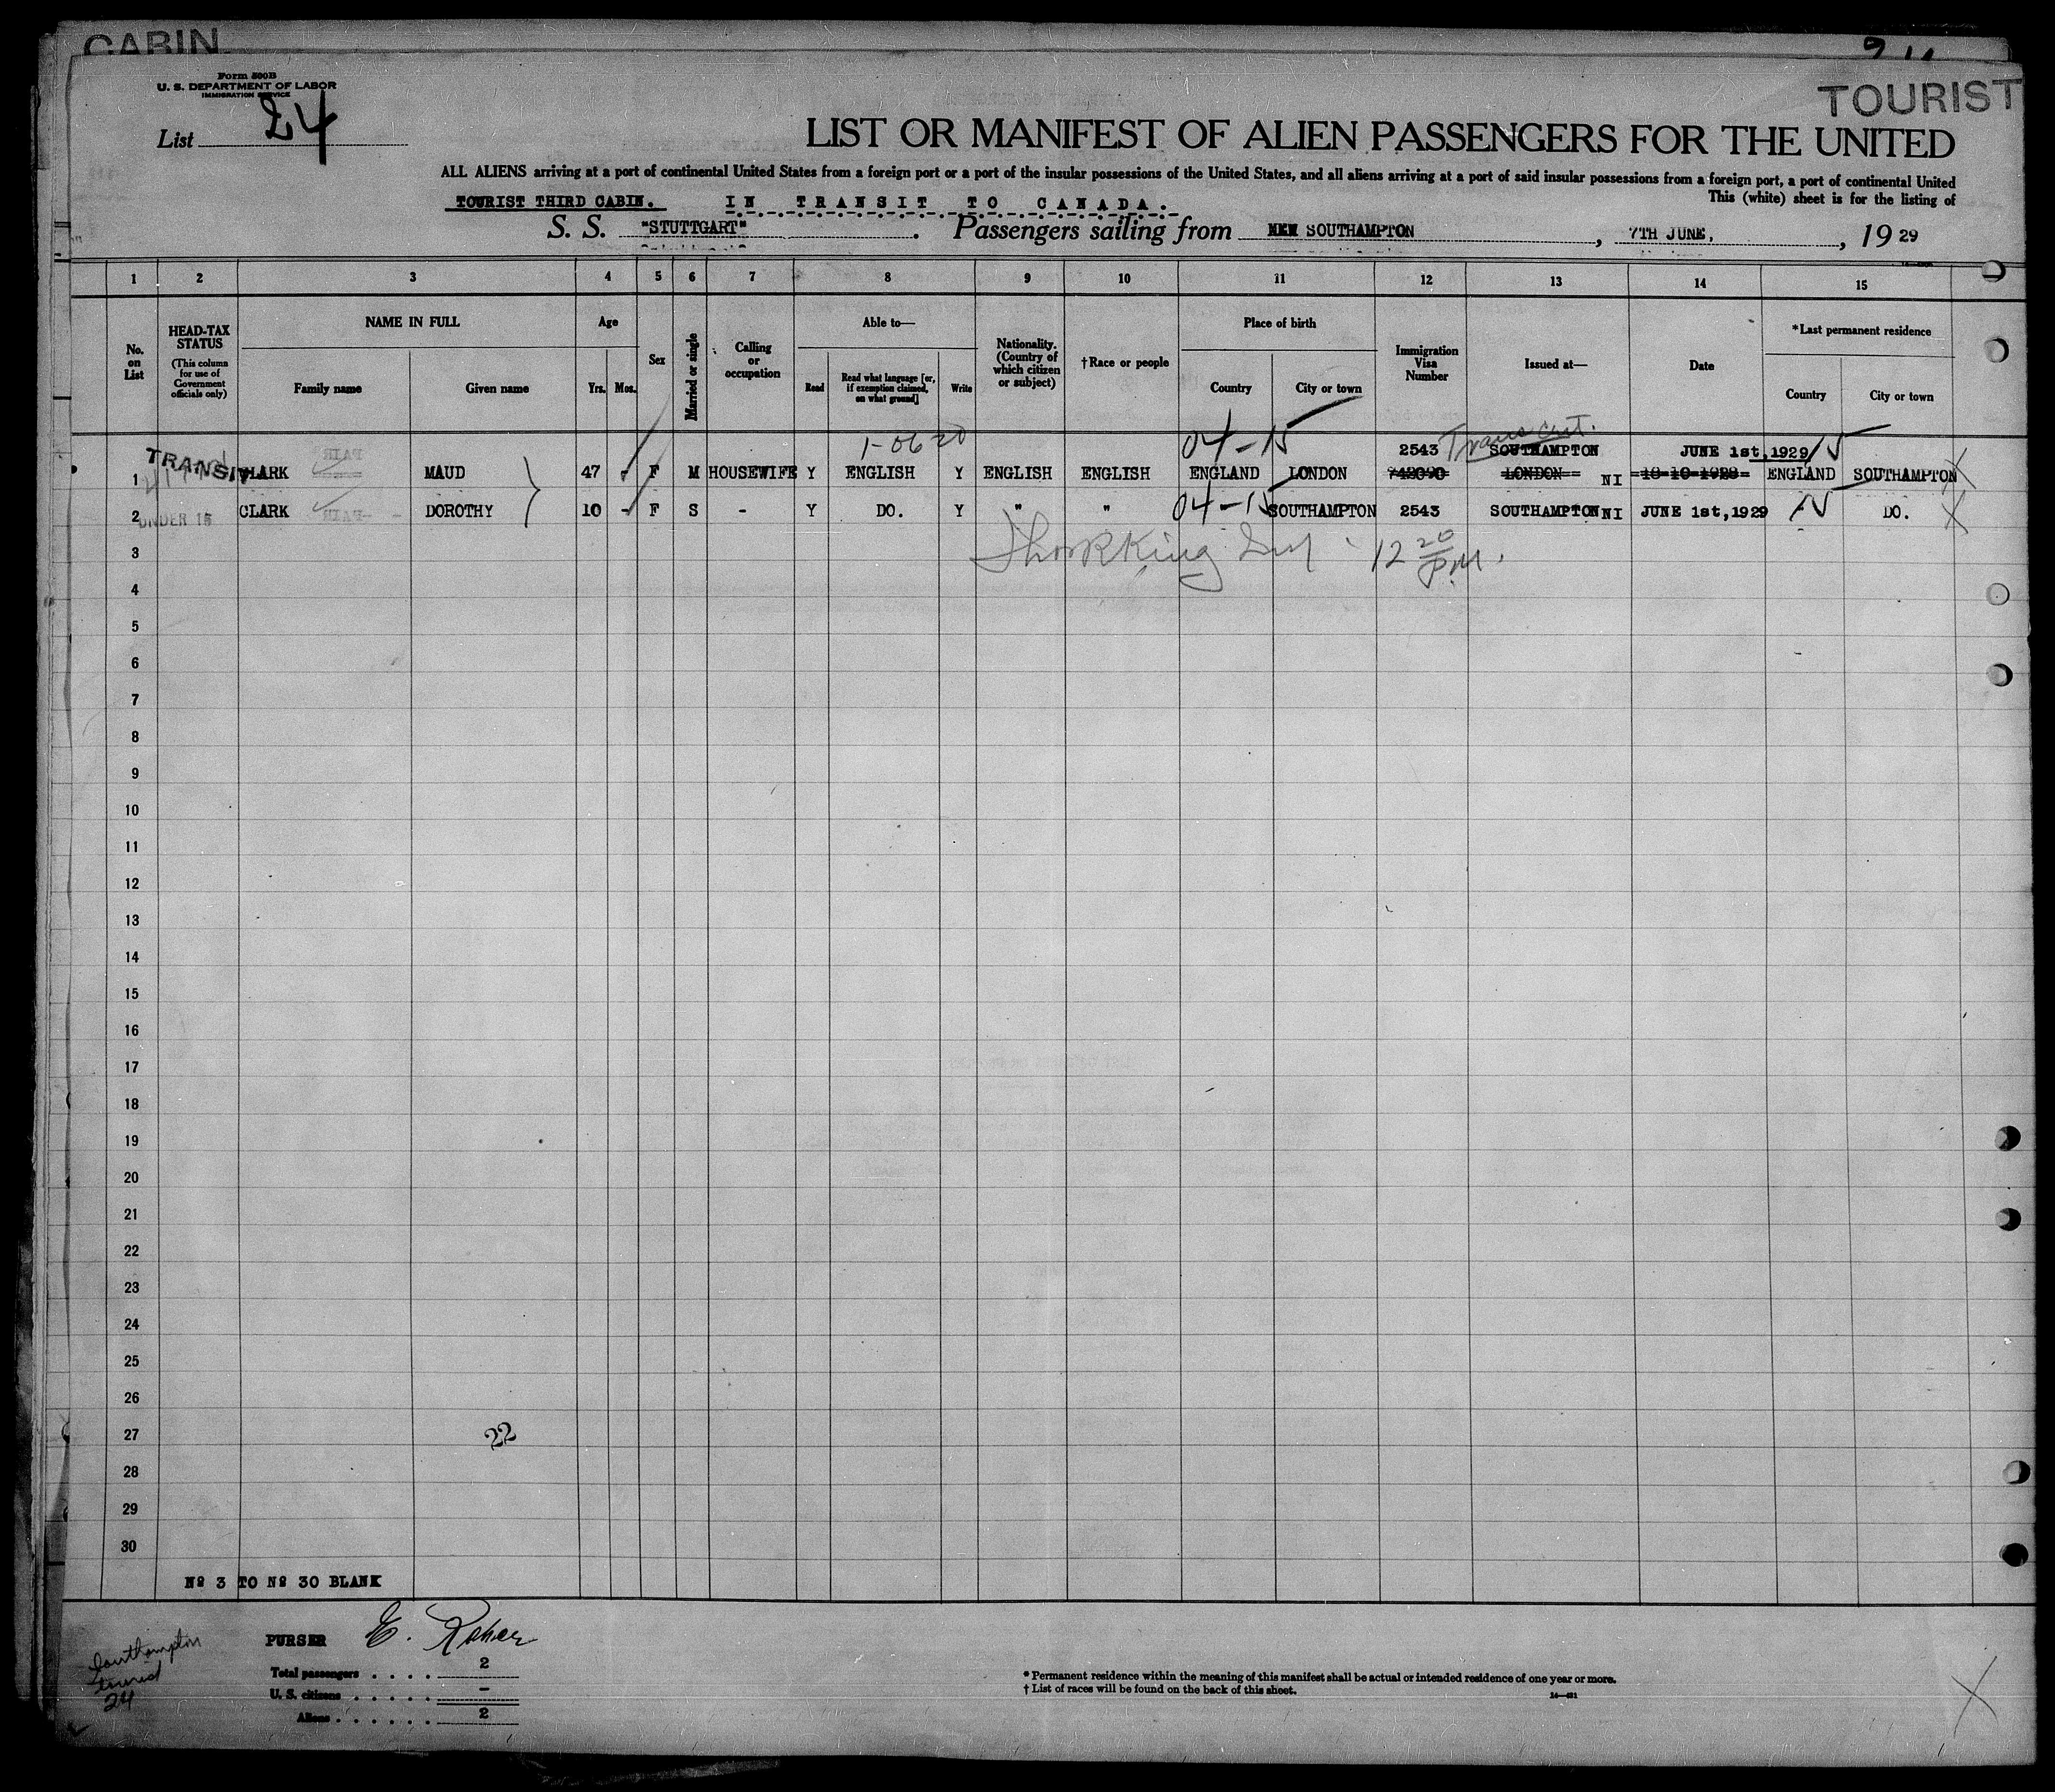 CABIN
Form 500B
U. S. DEPARTMENT OF LABOR
IMMIGRATION SERVICE
TOURIST
List 24
LIST OR MANIFEST OF ALIEN PASSENGERS FOR THE UNITED
ALL ALIENS arriving at a port of continental United States from a foreign port or a port of the insular possessions of the United States, and all aliens arriving at a port of said insular possessions from a foreign port, a port of continental United
TOURIST THIRD CABIN. IN TRANSIT TO CANADA. This (white) sheet is for the listing of
S. S. "STUTTGART". Passengers sailing from SOUTHAMPTON, 7TH JUNE, 1929
1 2 3 4 5 6 7 8 9 10 11 12 13 14 15
No. on List
HEAD-TAX STATUS (This column for use of Government officials only)
NAME IN FULL
Family name Given name
Age
Yrs. Mos.
Sex
Married or single
Calling or occupation
Able to—
Read Read what language [or, if exemption claimed, on what ground] Write
Nationality. (Country of which citizen or subject)
†Race or people
Place of birth
Country City or town
Immigration Visa Number
Issued at—
Date
*Last permanent residence
Country City or town
1-0620 04-15 2543 SOUTHAMPTON JUNE 1st,1929
1 TRANSIT CLARK MAUD 47 - F M HOUSEWIFE Y ENGLISH Y ENGLISH ENGLISH ENGLAND LONDON LONDON NI 18-10-1928 ENGLAND SOUTHAMPTON
2 UNDER 16 CLARK DOROTHY 10 - F S - Y DO. Y " " 04-15 SOUTHAMPTON 2543 SOUTHAMPTON NI JUNE 1st,1929 DO.
3 12 20 P.M.
4
5
6
7
8
9
10
11
12
13
14
15
16
17
18
19
20
21
22
23
24
25
26
27 22
28
29
30
Nº 3 TO Nº 30 BLANK
Southampton
24
PURSER E.
Total passengers . . . . 2
U. S. citizens . . . . . –
Aliens . . . . . . 2
* Permanent residence within the meaning of this manifest shall be actual or intended residence of one year or more.
† List of races will be found on the back of this sheet.